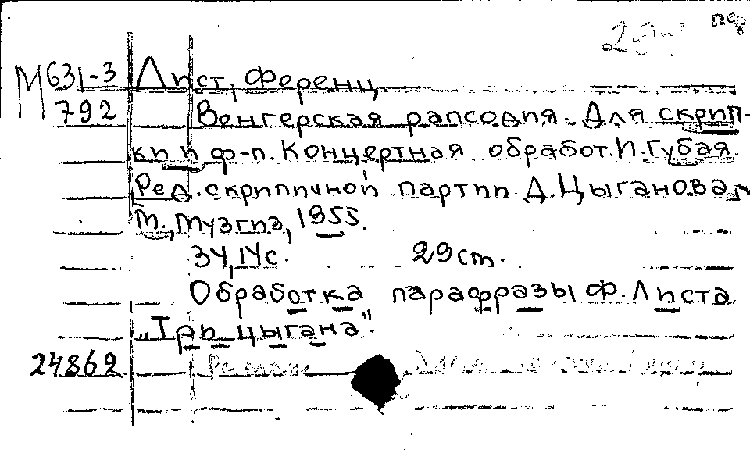 пер
М 631-3 Лист, Ференц
792 Венгерская рапсодия. Для скрип-
ки и ф-п. Концертная обработ. И. Губая.
Ред. скрипичной партии Д. Цыганова.
М., Музгиз, 1955.
34, 14с. 29 ст.
Обработка парафразы Ф. Листа
„Три цыгана".
24862